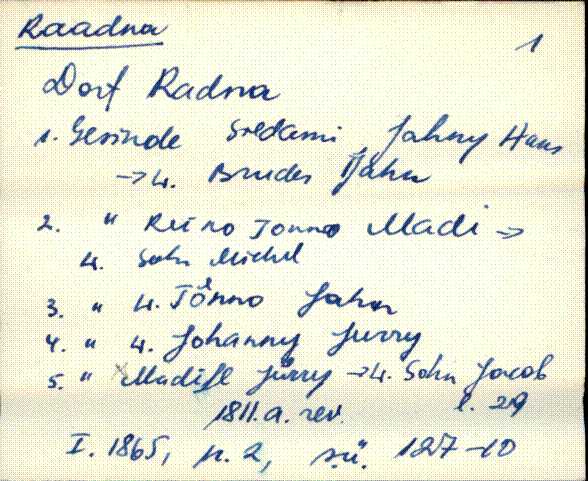 Raadna
1
Dorf Radna
1. Gesinde Sredami Jahny Hans
→ W. Bruder Jahn
2. " Reino Tonno Madi →
W. Sohn Michel
3. " W. Tõnno Jahn
4. " W. Johanny Jurry
5. " Jürry → W. Sohn Jacob
1811. a. rev. l. 29
I. 1865, n. 2, s.ü. 127-10